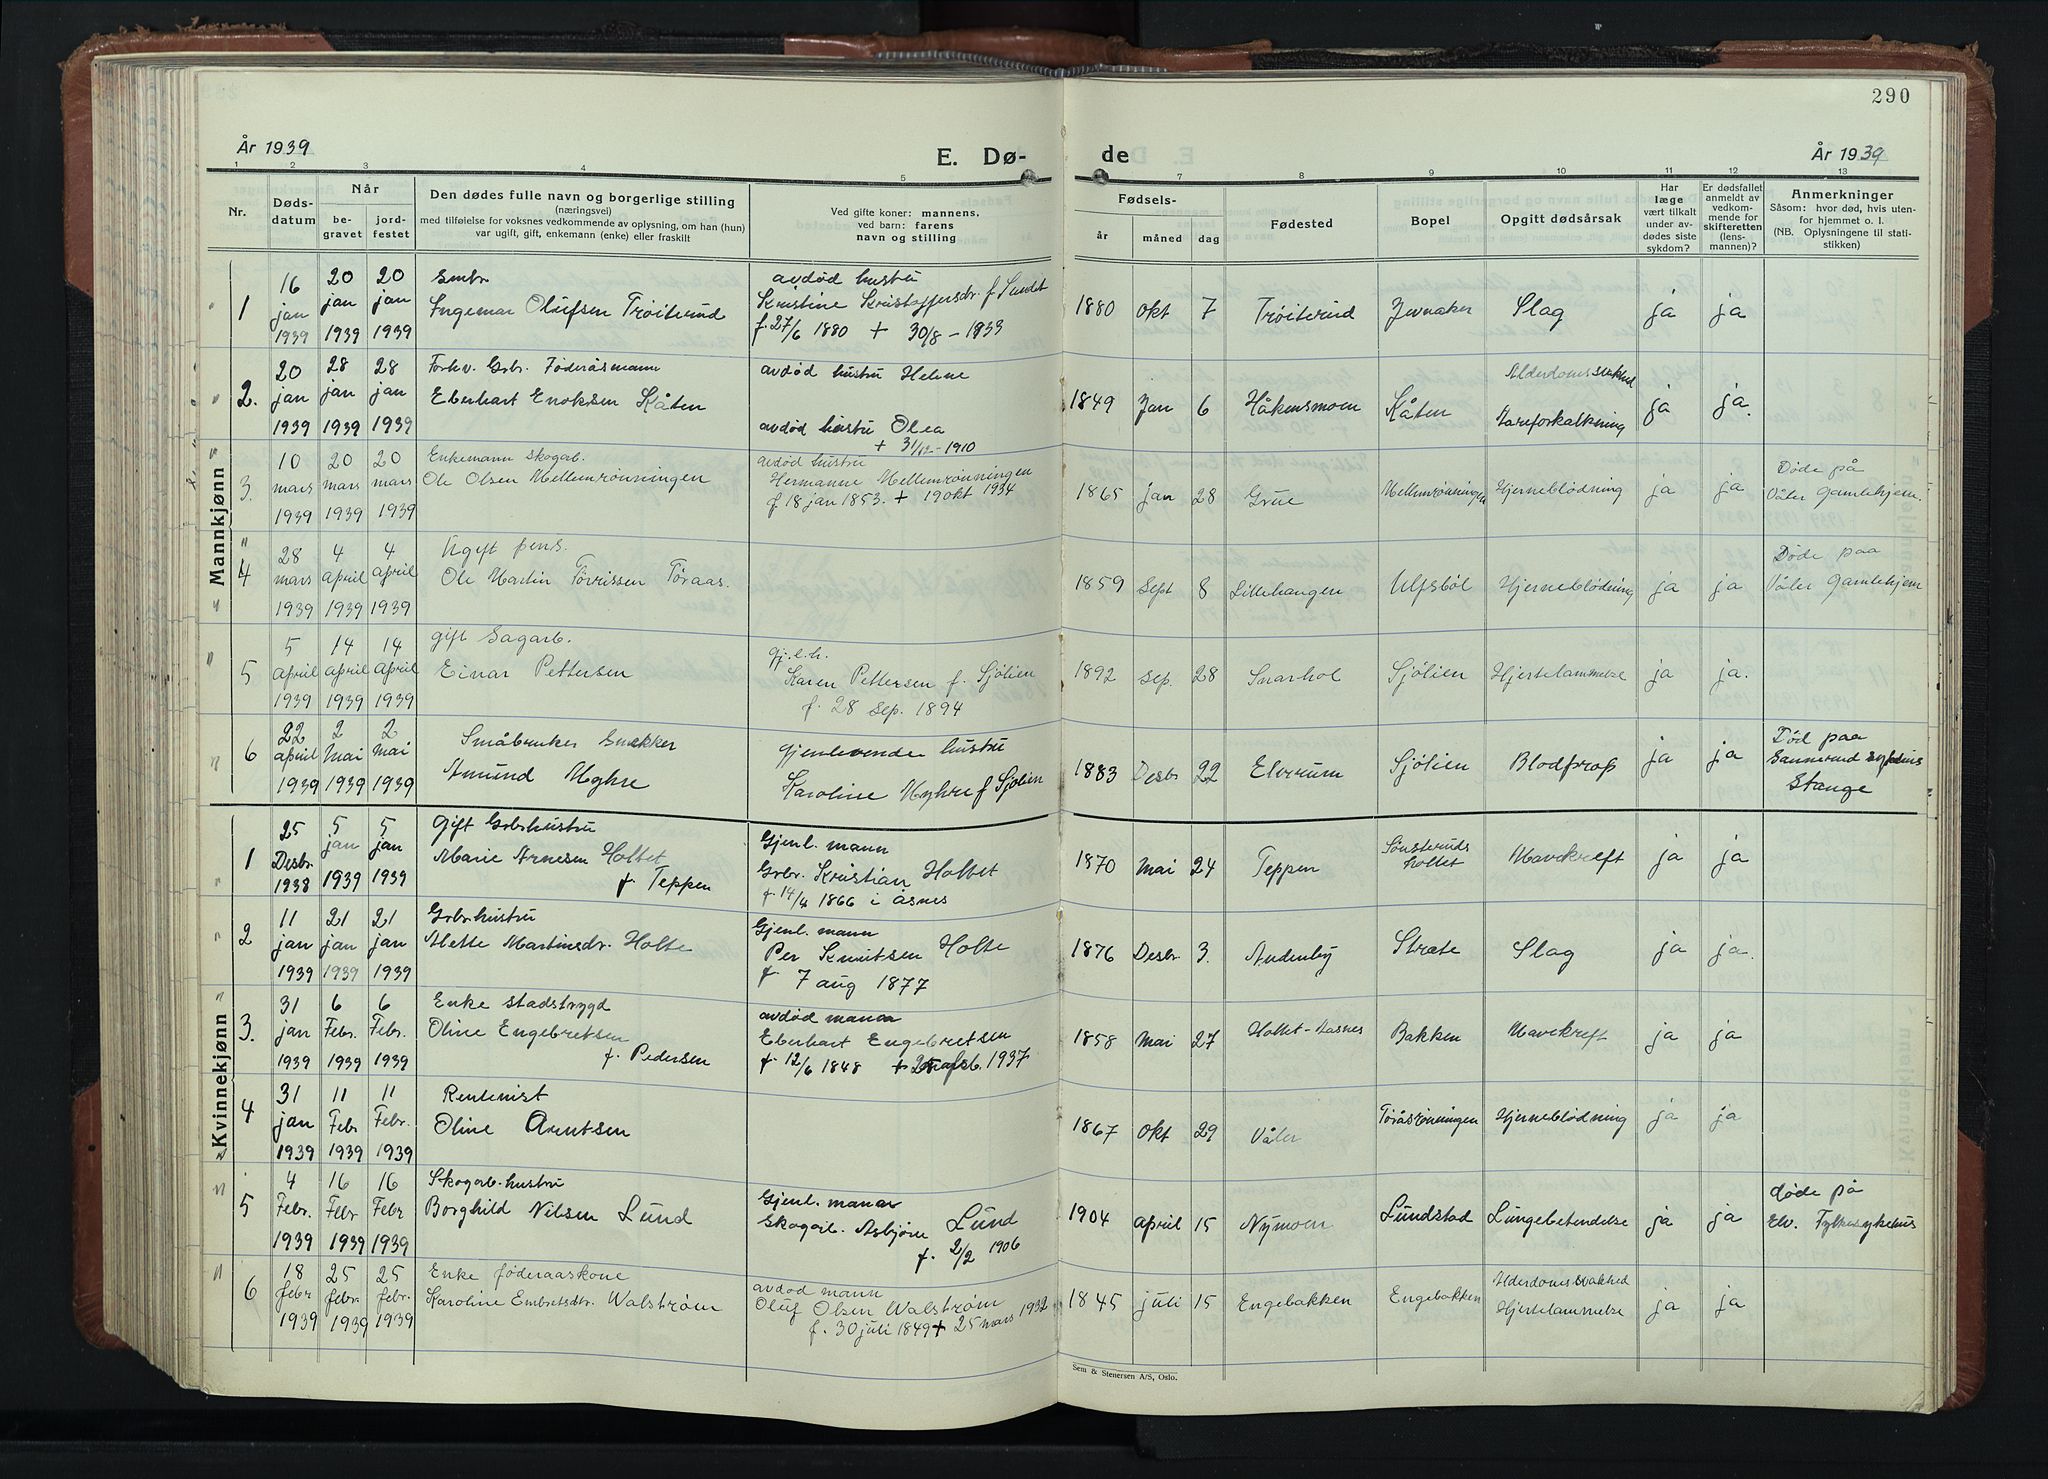 290
År 1939
E. Dø-
de
År 1939
1 2 3 4 5 7 8 9 10 11 12 13
Nr.
Døds-
datum
Når
be-
gravet
jord-
festet
Den dødes fulle navn og borgerlige stilling
(næringsvei)
med tilføielse for voksnes vedkommende av oplysning, om han (hun)
var ugift, gift, enkemann (enke) eller fraskilt
Ved gifte koner: mannens,
ved barn: farens
navn og stilling
Fødsels-
år måned dag
Fødested
Bopel
Opgitt dødsårsak
Har
læge
vært tilkalt
under av-
dødes siste
sykdom?
Er dødsfallet
anmeldt av
vedkom-
mende for
skifteretten
(lens-
mannen)?
Anmerkninger
Såsom: hvor død, hvis uten-
for hjemmet o. l.
(NB. Oplysningene til stati-
stikken)
Mannkjønn
1
16 jan 1939
20 jan 1939
20 jan 1939
Smbr.
Ingemar Olufsen Trøiterud
avdød hustru
Kristine Kristoffersdr. f Sundet
f. 27/6 1880 + 30/8 - 1933
1880 Okt 7 Trøiterud Jevnaker Slag ja ja
2.
20 jan 1939
28 jan 1939
28 jan 1939
Forhv. Grbr. Føderåsmann
Eberhart Enoksen Kåten
avdød hustru Helene
avdød hustru Olea
+ 31/12-1910
1849 Jan 6 Håkensmoen Kåten
Alderdomssvakhed
Åreforkalkning
ja ja.
3.
10 mars 1939
20 mars 1939
20 mars 1939
Enkemann skogarb.
Ole Olsen Mellemrønningen
avdød hustru
Hermanne Mellemrønningen
f 18 jan 1853. + 19 okt 1934
1865 jan 28 Grue Mellemrønningen Hjerneblødning ja ja
Døde på
Våler Gamlehjem.
4
28 mars 1939
4 april 1939
4 april 1939
Ugift pens.
Ole Martin Tørrissen Tøraas.
1859 Sept 8 Lillehaugen Ulfsbøl Hjerneblødning ja ja
Døde paa
Våler Gamlehjem
5
5 april 1939
14 april 1939
14 april 1939
gift Sagarb.
Einar Pettersen
gj.l.h.
Karen Pettersen f. Sjølien
f. 28 Sep. 1894
1892 sep. 28 Snarhol Sjølien Hjertelammelse ja ja.
6
22 april 1939
2 Mai 1939
2 mai 1939
Småbruker Snekker
Amund Myhre
gjenlevende hustru
Karoline Myhre f Sjølien
1883 Desbr 22 Elverum Sjølien Blodprop ja ja
Død paa
Sannerud sykehus
Stange
Kvinnekjønn
1
25 Desbr. 1938
5 jan 1939
5 jan 1939
Gift Grbrhustru
Marie Arnesen Holtet
f Teppen
Gjenl. mann
Grbr. Kristian Holtet
f. 14/4 1866 i Åsnes
1870 Mai 24 Teppen
Sønsteruds
holtet
Mavekreft ja ja
2
11 jan 1939
21 jan 1939
21 jan 1939
Grbrhustru
Alette Martinsdr. Holte
Gjenl. mann
Per Knutsen Holte
f 7 aug 1877
1876 Desbr 3. Audenby Stræte Slag ja ja.
3.
31 jan 1939
6 Febr. 1939
6 Febr. 1939
Enke stadstrygd
Oline Engebretsen
f. Pedersen
avdød mann
Eberhart Engebretsen
f 12/6 1848 + 1937
1858 Mai 27 Holtet-Aasnes Bakken Mavekreft ja ja
4
31 jan 1939
11 Febr 1939
11 Febr. 1939
Rentenist
Oline Arentsen
1867 Okt 29 Våler Tøråsrønningen Hjerneblødning ja ja
5
4 Febr. 1939
16 Febr 1939
16 Febr 1939
Skogarb.hustru
Borghild Nilsen Lund
Gjenl. mann
Skogarb. Asbjørn Lund
f. 2/2 1906
1904 april 15 Nymoen Lundstad Lungebetendelse ja ja
døde på
Elv. Fylkesykehus
6
18 febr 1939
25 febr. 1939
25 febr. 1939
Enke føderaaskone
Karoline Embretsdtr. Walstrøm
avdød mann
Oluf Olsen Walstrøm
f. 30 juli 1849 + 25 mars 1932
1845 juli 15 Engebakken Engebakken
Alderdomssvakhed
Hjertelammelse
ja ja
Sem & Stenersen A/S, Oslo.